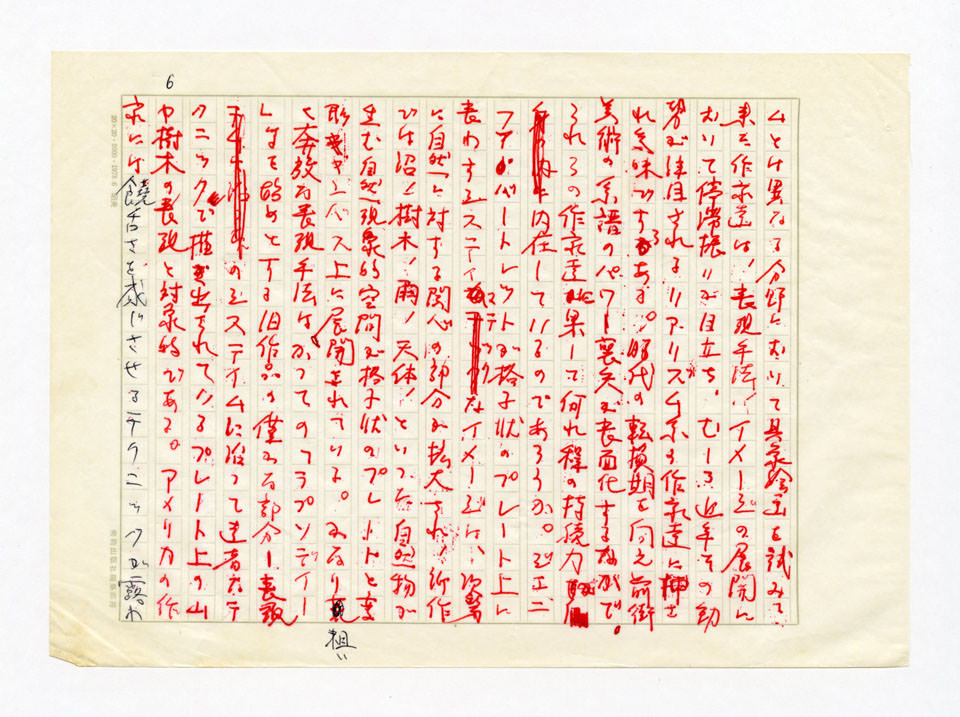 6
ムとは異なる分野において具象絵画を試みて
来た作家達は、表現手法、イメージの展開に
おいて停滞振りが目立ち、むしろ近年その動
勢が注目されるリアリズム系の作家達に
れ気味ですらある。時代の転換期を向え前衛
美術の系譜のパワー喪失が表面化するなかで。
それらの作家達は果して何れ程の持続力
内在しているのであろうか。ジェニ
ファ・バートレットが格子状のプレート上に
表わすミスティックなイメージは、次第
に自然に対する関心の部分が拡大され、新作
では沼、樹木、雨、天体、といった自然物が
生む自然現象的空間が格子状のプレートと変
形キャンバス上に展開されている。かなり粗い
く奔放な表現手法は、かつてのラプソディー
しはじめとする旧作品の僅かな部分し表敬
のシステイムに沿って達者なテ
クニックで描き出されているプレート上の山
や樹木の表現と対象的である。アメリカの作
家には饒舌さを感じさせるテクニックが露わ